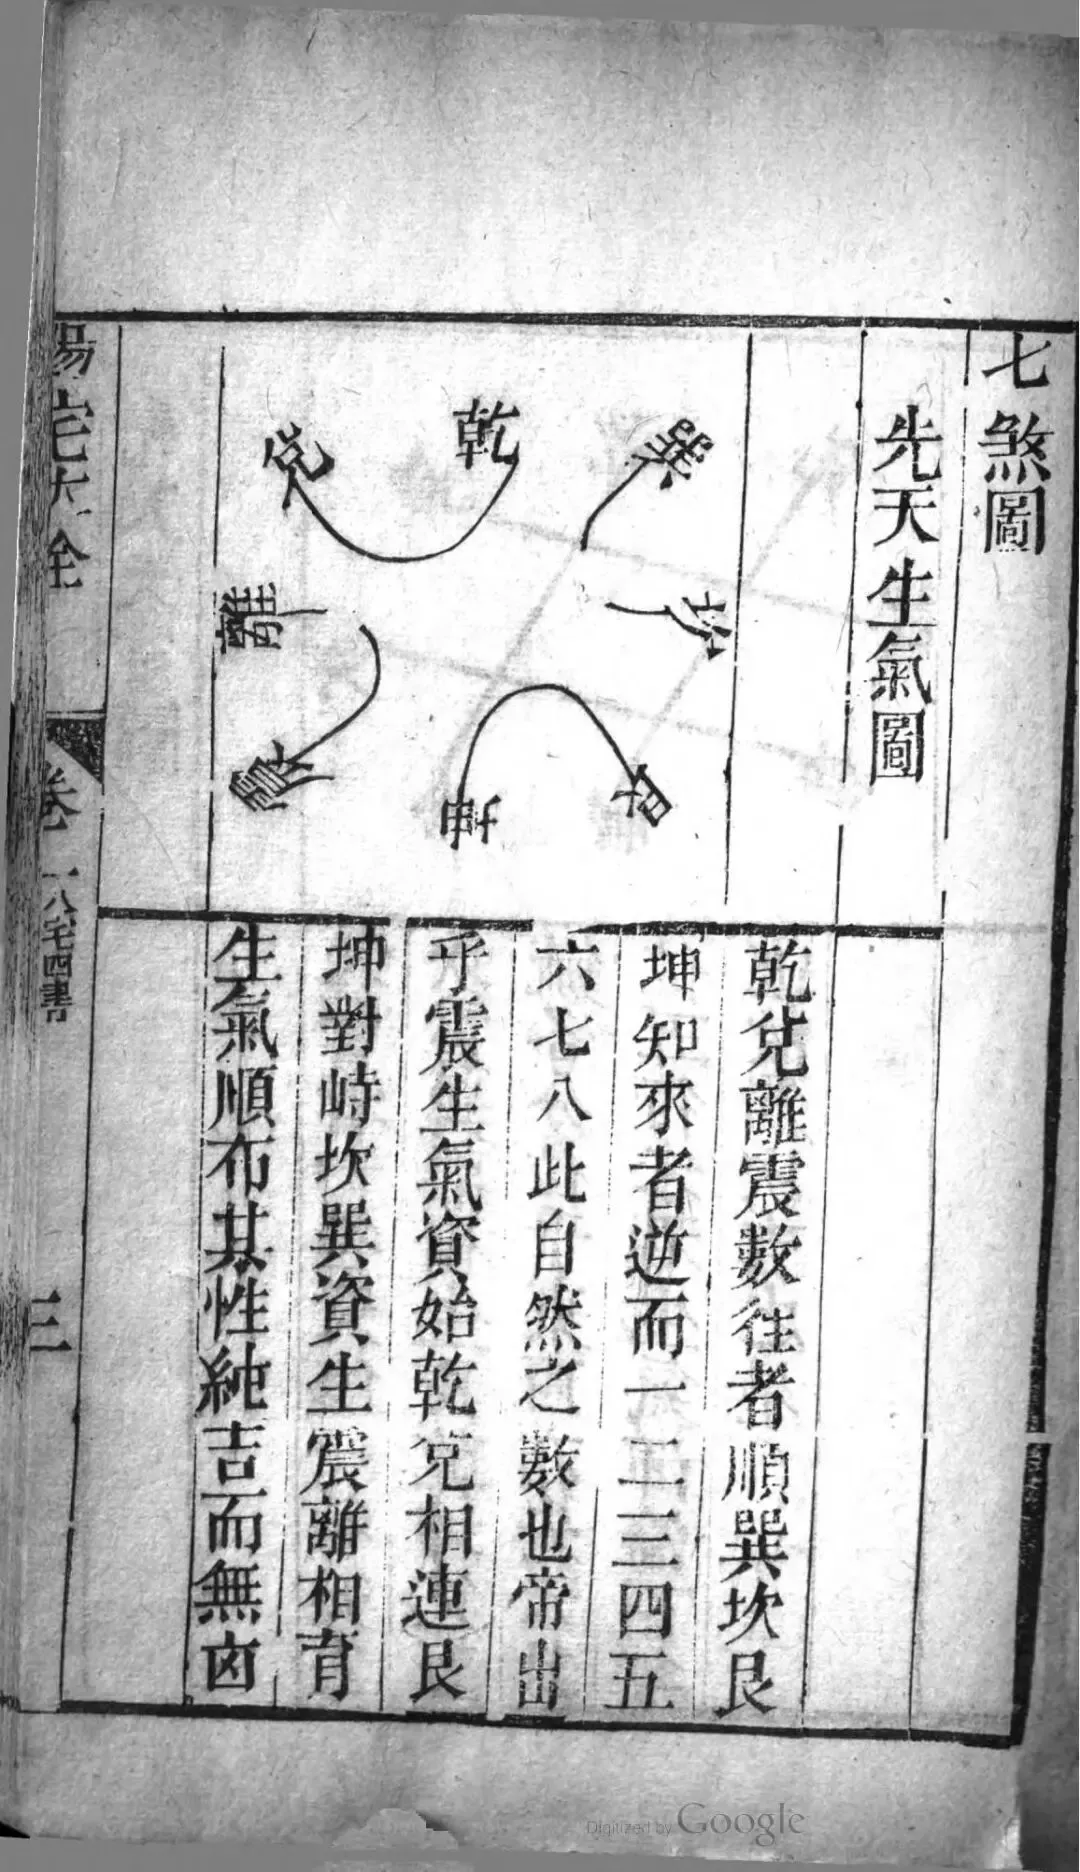 七煞圖
先天生氣圖
乾
兌
離
震
巽
坎
艮
坤
乾兌離震數往者順巽坎艮
坤知來者逆而一二三四五
六七八此自然之數也帝出
乎震生氣資始乾兌相連艮
坤對峙坎巽資生震離相育
生氣順布其性純吉而無凶
陽宅大全
卷一八宅四書
三
Digitized by Google